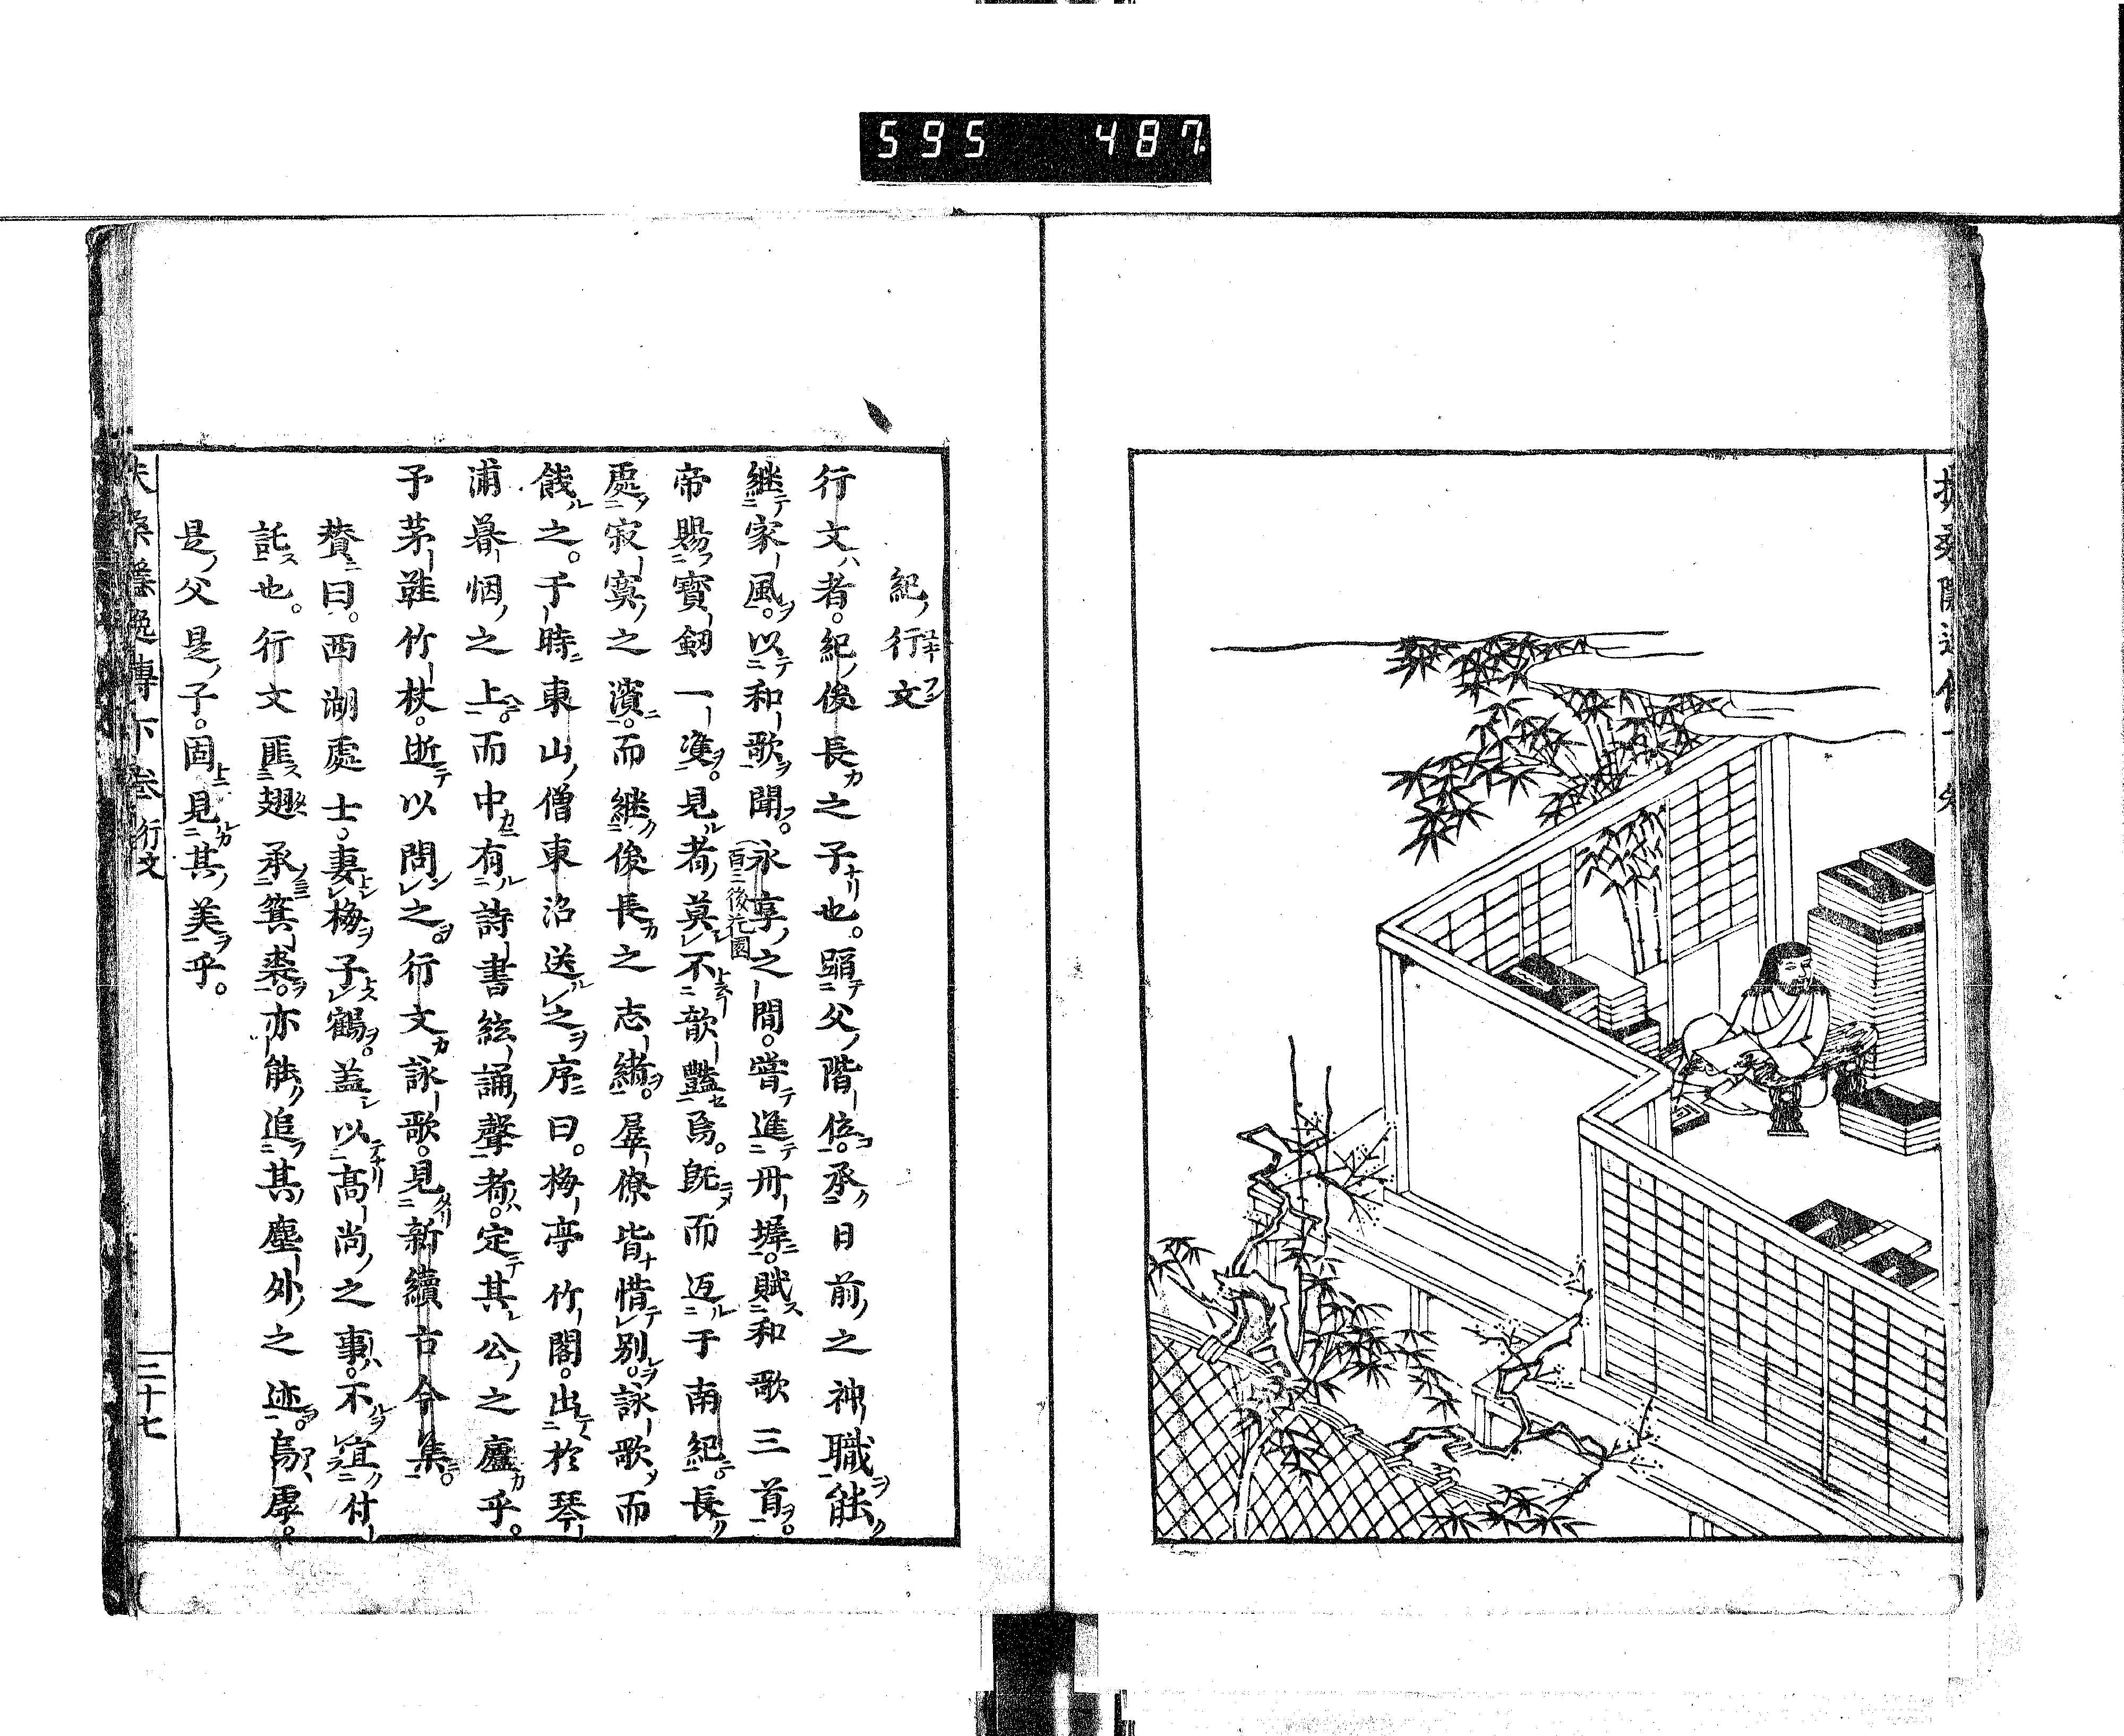 595 487
紀行文
行文者。紀俊長之子也。頭父階位。承日前之神職能
継家風。以和歌聞。永享之間。嘗進丹墀。賦和歌三首。
百三後花園
帝賜寶劔一雙。見者莫不歆豔焉。既而返于南紀。長
處寂寞之濱。而継俊長之志緒。群僚皆惜別。詠歌而
餞之。于時東山僧東沼送之序曰。梅亭竹閣。出於琴
浦暮烟之上。而中有詩書絃誦聲者。定其公之廬乎。
予茅鞋竹杖。逝以問之。行文詠歌。見新續古今集。
賛曰。西湖處士。妻梅子鶴。盖以髙尚之事。不宜付
託也。行文匪趐承箕裘。亦能追其塵外之迹。烏虖。
是父是子。固見其美乎。
扶桑隱逸傳下卷 行文 二十七